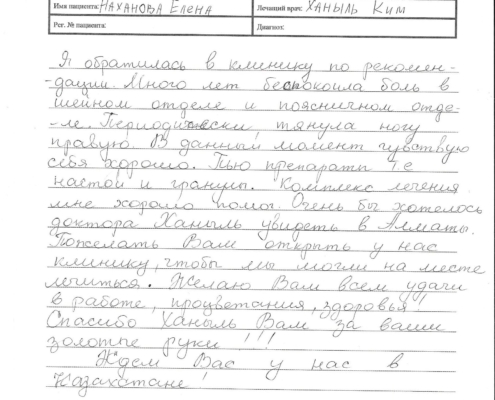 Имя пациента: НАХАНОВА ЕЛЕНА Лечащий врач: ХАНЫЛЬ КИМ
Рег. № пациента: Диагноз:
Я обратилась в клинику по рекомен-
-дации. Много лет беспокоила боль в
шейном отделе и поясничном отде-
-ле. Периодически, тянула ногу
правую. В данный момент чувствую
себя хорошо. Пью препараты т.е
настой и гранулы. Комплекс лечения
мне хорошо помог. Очень бы хотелось
доктора Ханыль увидеть в Алматы.
Пожелать Вам открыть у нас
клинику, чтобы мы могли на месте
лечиться. Желаю Вам всем удачи
в работе, процветания, здоровья!
Спасибо Ханыль Вам за ваши
золотые руки !!!
Ждем Вас у нас в
Казахстане!